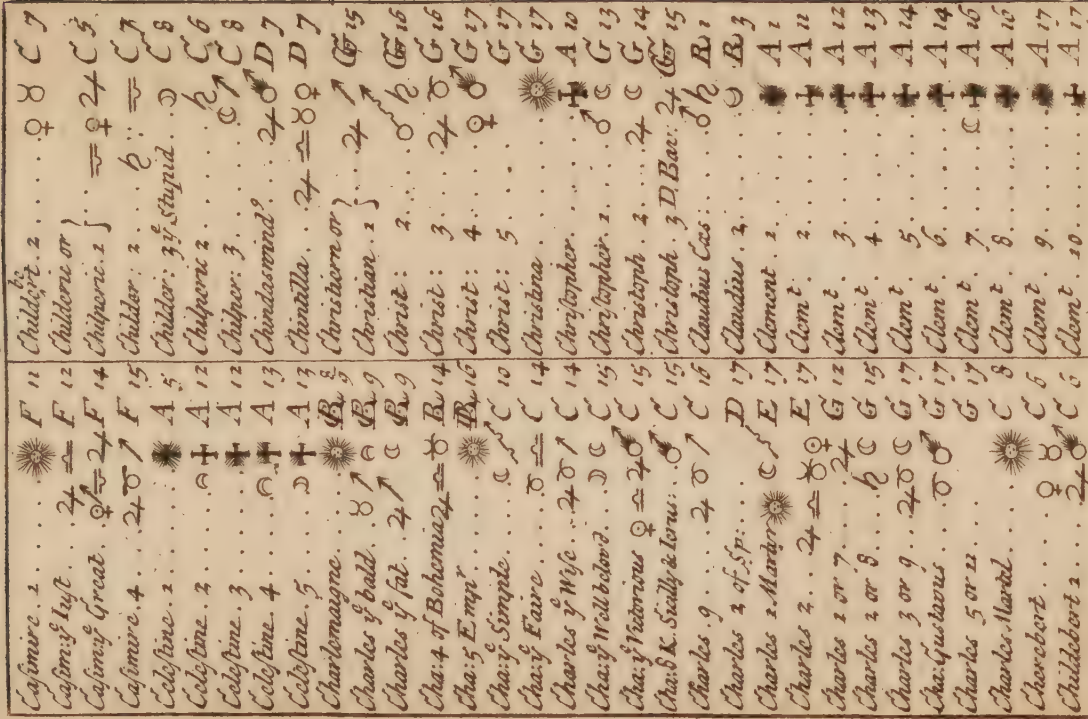 Casimire 1 ☉ F 11
Casim: yͤ Iust ♃ ♎ F 12
Casim: yͤ Great ♎ ♃ F 14
Casimire 4 ♃ ♉ ♐ F 15
Celestine 1 A 5
Celestine 2 ☽ A 12
Celestine 3 A 12
Celestine 4 ☽ A 13
Celestine 5 ☽ A 13
Charlemagne ☉ 8 9
Charles yͤ bald ♉ ♐ 9
Charles yͤ fat ♃ ♐ ☾ 9
Cha: 4 of Bohemia ♃ ♎ ♉ B 14
Cha: 5 Empr ☉ 16
Cha: yͤ Simple ☾ C 10
Cha: yͤ Faire ♉ ♎ C 14
Charles yͤ Wise ♃ ♉ ♐ C 14
Cha: yͤ Well belovd ☽ ☾ C 15
Cha: yͤ Victorious ♀ ♎ ♃ ♂ C 15
Cha: 8 K. Sicilly & Ierus: ♂ C 15
Charles 9 ♃ ♉ ♐ C 16
Charles 2 of Sp. D 17
Charles 1 Martyr ☉ ☾ E 17
Charles 2 ♃ ♎ ♉ ♀ E 17
Charles 1 or 7 ♃ G 12
Charles 2 or 8 ♄ ☾ G 15
Charles 3 or 9 ♃ ♉ ☾ G 17
Cha: Gustavus ♉ ♂ G 17
Charles 5 or 11 G 17
Charles Martel ☉ C 8
Cherebert ♀ ♉ C 6
Childebert 1 ♃ ♉ ♂ C 6
Childebert. 2 ♀ ♉ C 7
Childeric or
Chilperic. 1 } ♒ ♀ ♃ C 5
Childer: 2 ♄ : ♒ C 7
Childer: 3 yͤ Stupid ☽ C 8
Chilperic 2 ♄ C 6
Chilper: 3 ☾ ♐ C 8
Chindasmond ♃ ♂ D 7
Chintilla ♃ ♎ ♉ ♀ D 7
Christiern or
Christian. 1 } ♃ ♐ G 15
Christ: 2 ♂ ♄ G 16
Christ: 3 ♃ ♉ G 16
Christ: 4 ♀ ♂ G 17
Christ: 5 G 17
Christina ☉ G 17
Christopher A 10
Christopher. 1 ♂ ☾ G 13
Christoph. 2 ♃ ☾ G 14
Christoph. 3 D Bav: ♃ G 15
Claudius Cæs: ♂ ♄ B 1
Claudius 2 B 3
Clement 1 A 1
Clemt 2 A 11
Clemt 3 A 12
Clemt 4 A 13
Clemt 5 A 14
Clemt 6 A 14
Clemt 7 ☾ A 16
Clemt 8 A 16
Clemt 9 A 17
Clemt 10 A 17